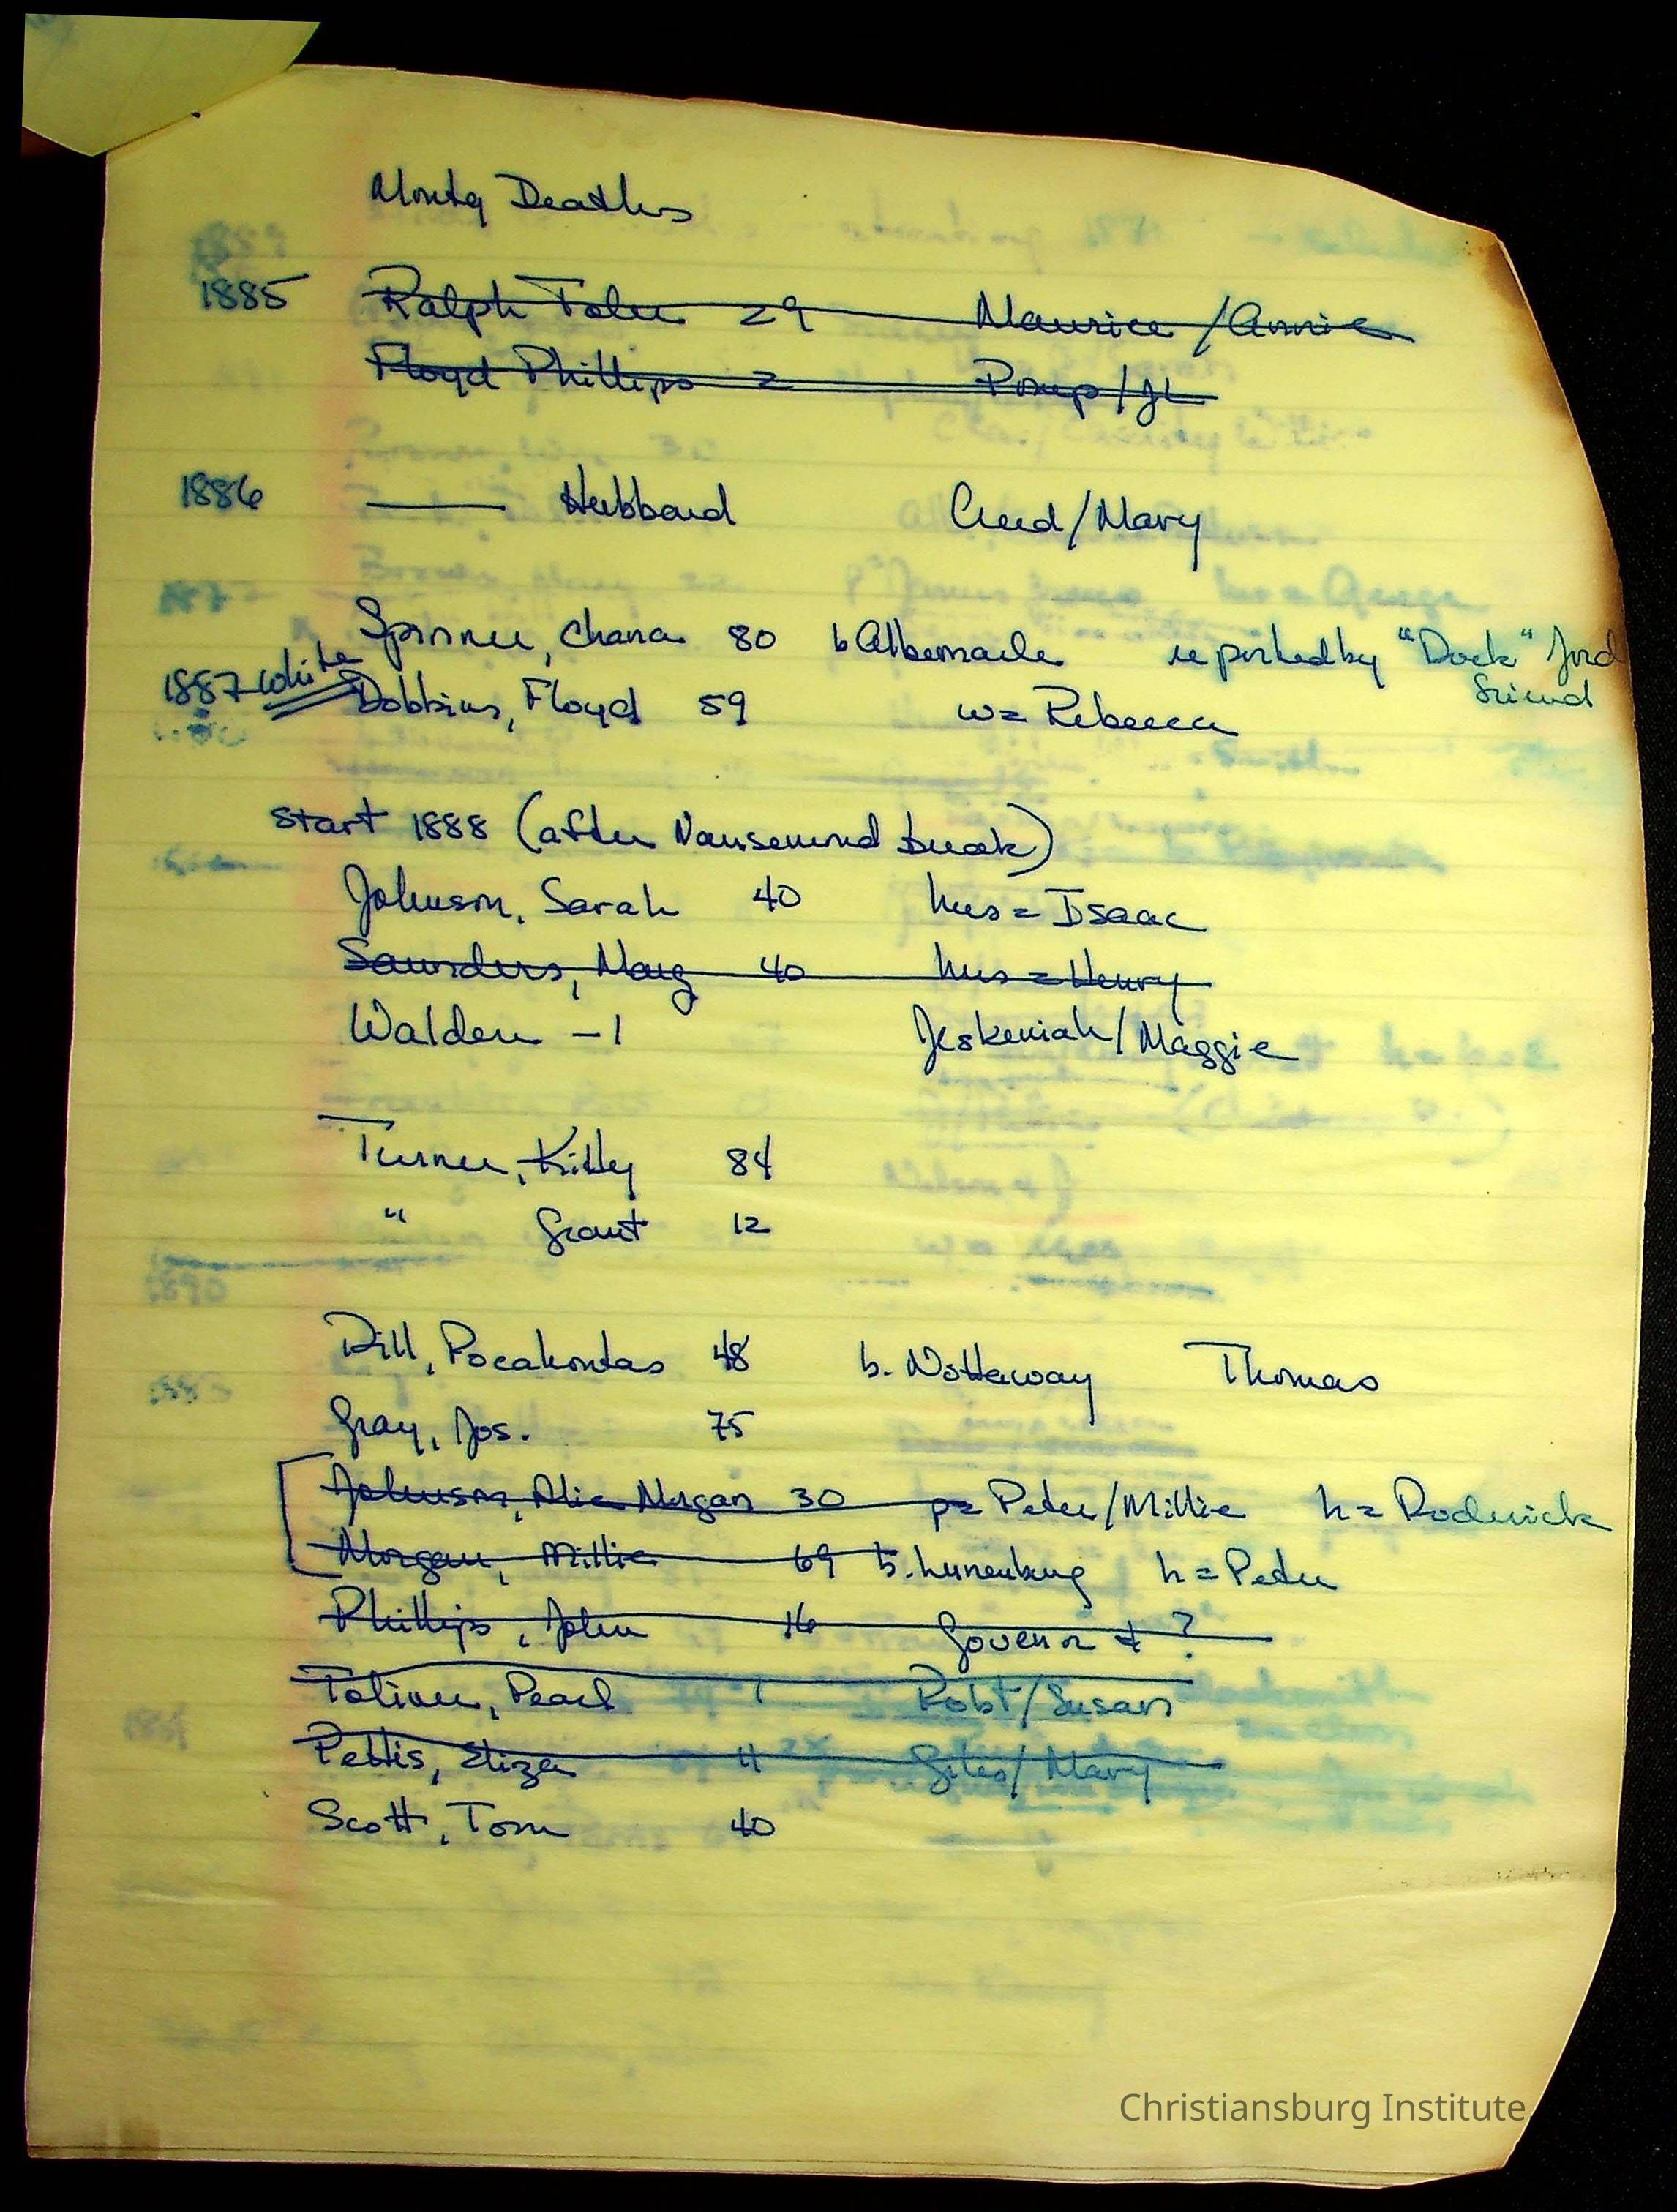 Montg Deaths
1885 Ralph Toler 29 Maurice/Annie
Floyd Phillips 2 Pomp/
1886 —— Hubbard Creed/Mary
Spinner, Chana 80 b Albemarle reported by "Dock" Ford
friend
1887 white Dobbins, Floyd 59 w= Rebecca
start 1888 (after Nansemond break)
Johnson, Sarah 40 hus = Isaac
Saunders, Marg 40 hus = Henry
Walden -1 Jeskeniah/Maggie
Turner, Kitty 84
" Grant 12
Dill, Pocahontas 48 b. Nottaway Thomas
Gray, Jos. 75
Johnson, Alice Morgan 30 p= Peter/Millie h= Roderick
Morgan, Millie 69 b. Lunenburg h= Peter
Phillips, John 16 Govenor & ?
Toliver, Pearl 1 Robt/Susan
Pettis, Eliza 11 Giles/Mary
Scott, Tom 40
Christiansburg Institute